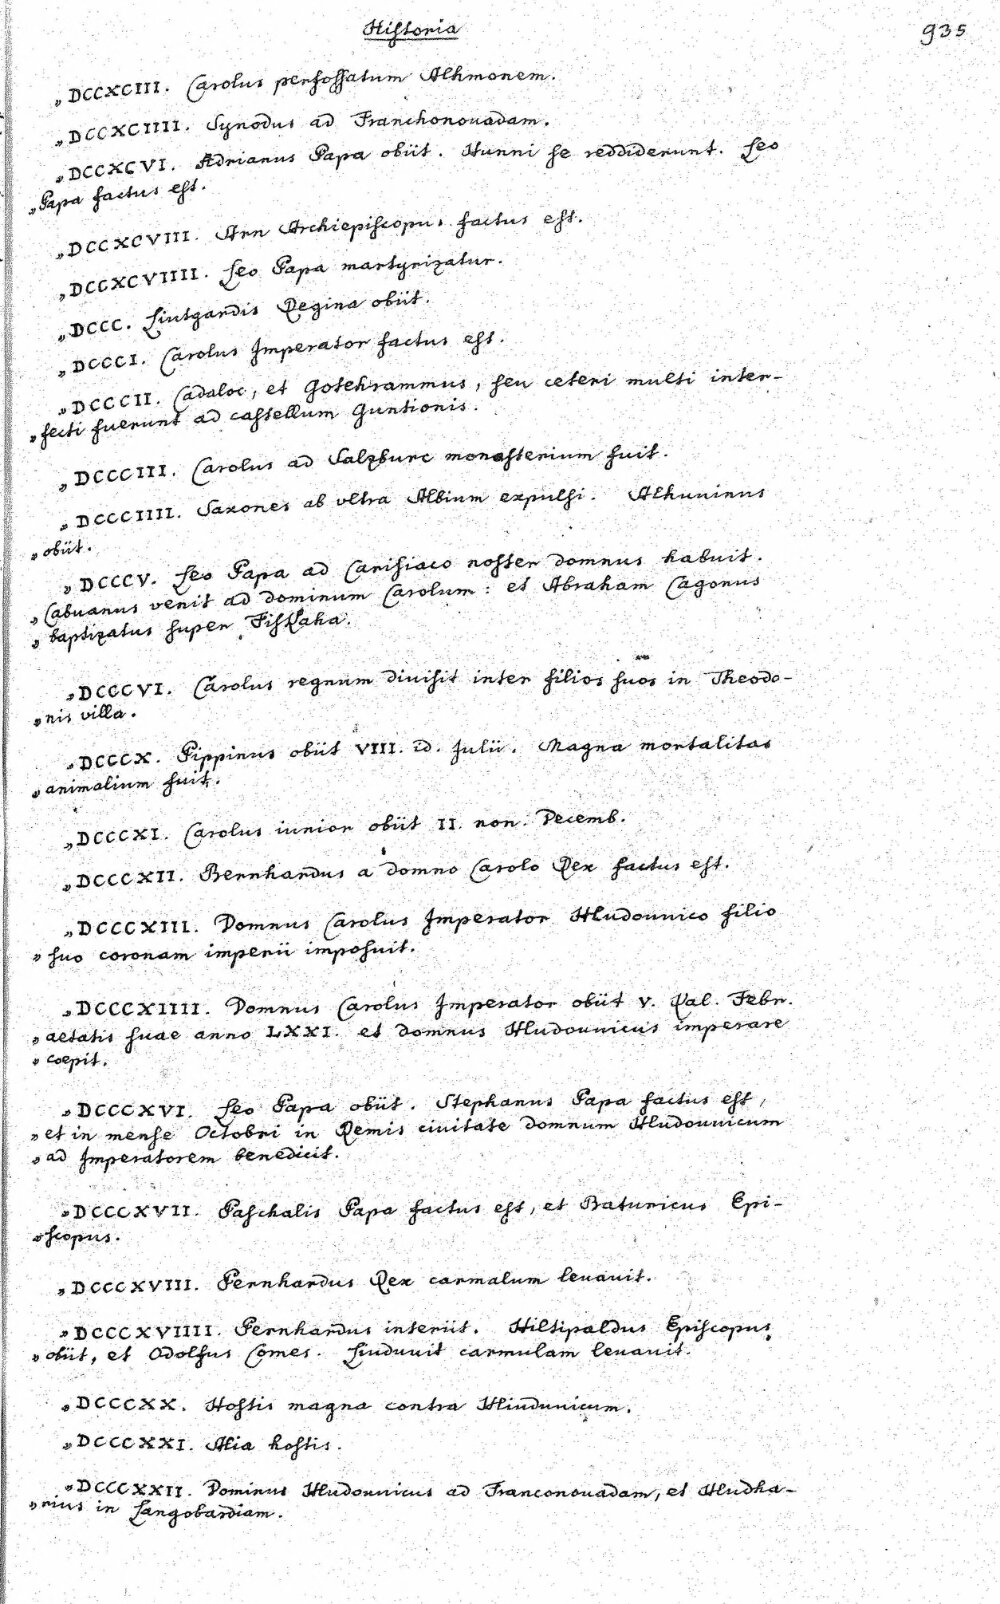 Historia
935
„DCCXCIII. Carolus perfossatum Alhmonem.
„DCCXCIIII. Synodus ad Franchonouadam.
„DCCXCVI. Adrianus Papa obiit. Hunni se reddiderunt. Leo
„Papa factus est.
„DCCXCVIII. Arn Archiepiscopus factus est.
„DCCXCVIIII. Leo Papa martyrizatur.
„DCCC. Liutgardis Regina obiit.
„DCCCI. Carolus Imperator factus est.
„DCCCII. Cadaloc, et Gotehrammus, seu ceteri multi inter-
„fecti fuerunt ad castellum Guntionis.
„DCCCIII. Carolus ad Salzburc monasterium fuit.
„DCCCIIII. Saxones ab vltra Albium expulsi. Alhuuinus
„obiit.
„DCCCV. Leo Papa ad Carisiaco noster domnus habuit.
„Cabuanus venit ad dominum Carolum: et Abraham Cagonus
„baptizatus super Fiskaha.
„DCCCVI. Carolus regnum diuisit inter filios suos in Theodo-
„nis villa.
„DCCCX. Pippinus obiit VIII. id. Julii. Magna mortalitas
„animalium fuit.
„DCCCXI. Carolus iunior obiit II. non. Decemb.
„DCCCXII. Bernhardus a domno Carolo Rex factus est.
„DCCCXIII. Domnus Carolus Imperator Hludouuico filio
„suo coronam imperii imposuit.
„DCCCXIIII. Domnus Carolus Imperator obiit V. Kal. Febr.
„aetatis suae anno LXXI. et domnus Hludouuicus imperare
„coepit.
„DCCCXVI. Leo Papa obiit. Stephanus Papa factus est,
„et in mense Octobri in Remis ciuitate domnum Hludouuicum
„ad Imperatorem benedicit.
„DCCCXVII. Paschalis Papa factus est, et Baturicus Epi-
„scopus.
„DCCCXVIII. Pernhardus Rex carmalum leuauit.
„DCCCXVIIII. Pernhardus interiit. Hiltipaldus Episcopus
„obiit, et Odolfus Comes. Liuduuit carmulam leuauit.
„DCCCXX. Hostis magna contra Hliuduuicum.
„DCCCXXI. Alia hostis.
„DCCCXXII. Dominus Hludouuicus ad Franconouadam, et Hludha-
„rius in Langobardiam.